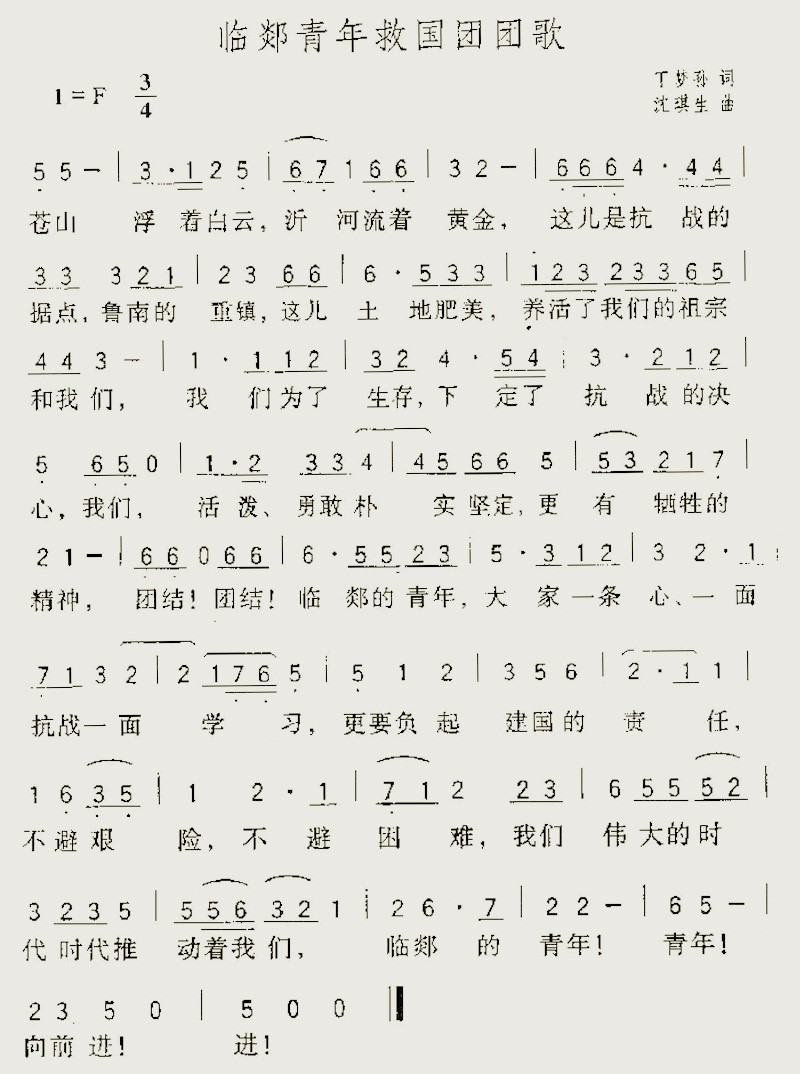 临郯青年救国团团歌
1=F 3/4
丁梦孙 词
沈琪生 曲
5 5 - | 3 · 1 2 5 | 6 7 1 6 6 | 3 2 - | 6 6 6 4 · 4 4 |
苍山 浮着白云，沂河流着 黄金， 这儿是抗 战的
3 3 3 2 1 | 2 3 6 6 | 6 · 5 3 3 | 1 2 3 2 3 3 6 5 |
据点，鲁南的 重镇，这儿 土 地肥美，养活了我们的祖宗
4 4 3 - | 1 · 1 1 2 | 3 2 4 · 5 4 | 3 · 2 1 2 |
和我们， 我 们为了 生存，下 定了 抗 战的决
5 6 5 0 | 1 · 2 3 3 4 | 4 5 6 6 5 | 5 3 2 1 7 |
心，我们， 活 泼、勇敢朴 实坚定，更 有 牺牲的
2 1 - | 6 6 0 6 6 | 6 · 5 5 2 3 | 5 · 3 1 2 | 3 2 · 1 |
精神， 团结！团结！临 郯的青年，大 家一条 心、一面
7 1 3 2 | 2 1 7 6 5 | 5 1 2 | 3 5 6 | 2 · 1 1 |
抗战一面 学 习，更要负起 建国的 责 任，
1 6 3 5 | 1 2 · 1 | 7 1 2 2 3 | 6 5 5 5 5 2 |
不避艰 险，不 避 困 难，我们 伟大的时
3 2 3 5 | 5 5 6 3 2 1 | 2 6 · 7 | 2 2 - | 6 5 - |
代时代推 动着我们， 临郯 的 青年！ 青年！
2 3 5 0 | 5 0 0 ‖
向前进！ 进！